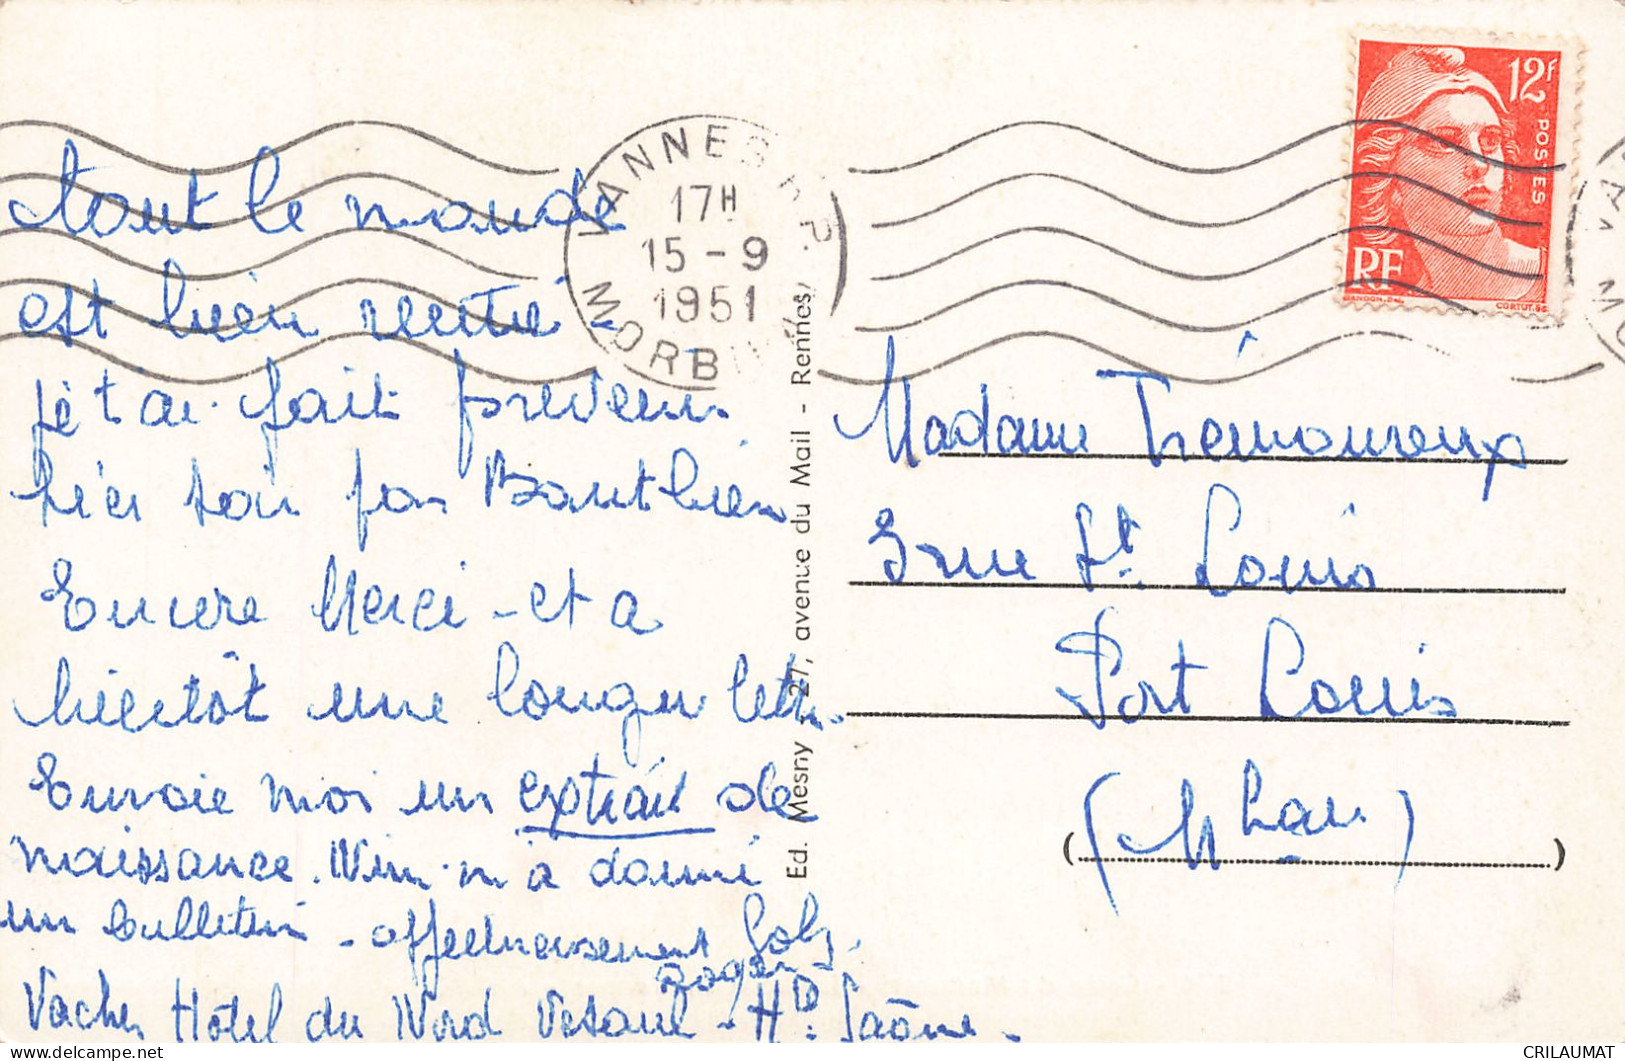 tout le monde
est bien rentré -
je t'ai fait prévenir
hier soir par
Encore Merci - et a
bientôt une longue lettre.
Envoie moi un extrait de
naissance. m'a donné
un bulletin - affectueusement
Roger
Hôtel du Nord Vesoul - Hte Saône -
VANNES R.P.
17H
15 - 9
1951
MORBIHAN
Ed. Mesny 27, avenue du Mail - Rennes
12F
POSTES
RF
GANDON. DEL.
CORTOT. SC
Madame Trémoureux
3 rue St. Louis
Port Louis
(Mhan)
CRILAUMAT